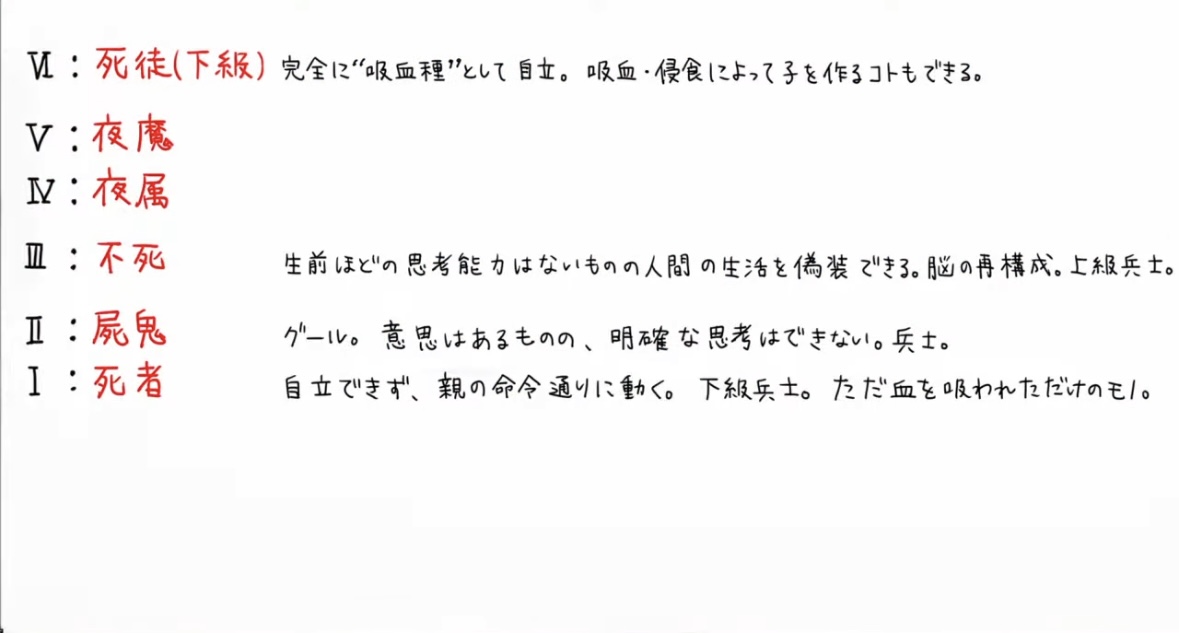 Ⅵ：死徒(下級) 完全に“吸血種”として自立。吸血・侵食によって子を作るコトもできる。
Ⅴ：夜魔
Ⅳ：夜属
Ⅲ：不死 生前ほどの思考能力はないものの人間の生活を偽装できる。脳の再構成。上級兵士。
Ⅱ：屍鬼 グール。意思はあるものの、明確な思考はできない。兵士。
Ⅰ：死者 自立できず、親の命令通りに動く。下級兵士。ただ血を吸われただけのモノ。